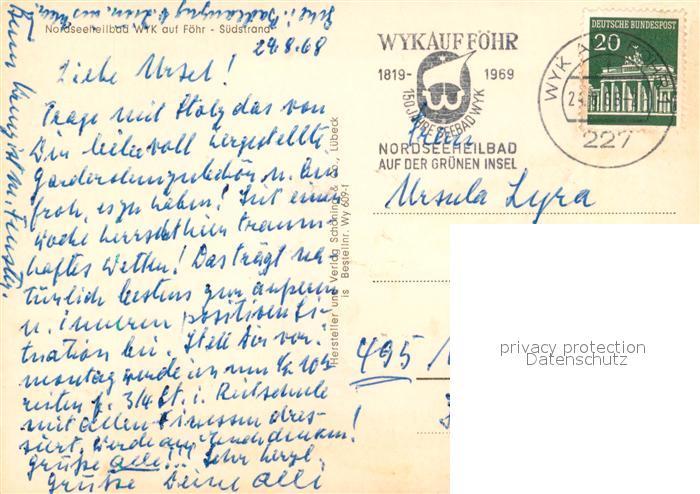 Nordseeheilbad WYK auf Föhr - Südstrand
29.8.68
Liebe Ursel!
Trage mit Stolz das von
Dir liebevoll hergestellte
Garderobenzubehör u. bin
froh, es zu haben! Seit einer
Woche herrscht hier traum-
haftes Wetter! Das trägt na-
türlich bestens zur äußeren
u. inneren positiven Si-
tuation bei. Stell Dir vor,
montag werde ich um 1/2 10
reiten f. 3/4 St. i. Reitschule
mit allen Finessen dres-
siert. Werde an denken!
Grüße alle!!! Sehr herzl.
Grüße Deine Alli
Hersteller und Verlag Schöning & Co., Lübeck
Bestellnr. Wy 609-1
WYK AUF FÖHR
1819- 1969
150 JAHRE SEEBAD WYK
NORDSEEHEILBAD
AUF DER GRÜNEN INSEL
DEUTSCHE BUNDESPOST
20
WYK A
227
Frau
Ursula Lyra
495
privacy protection
Datenschutz